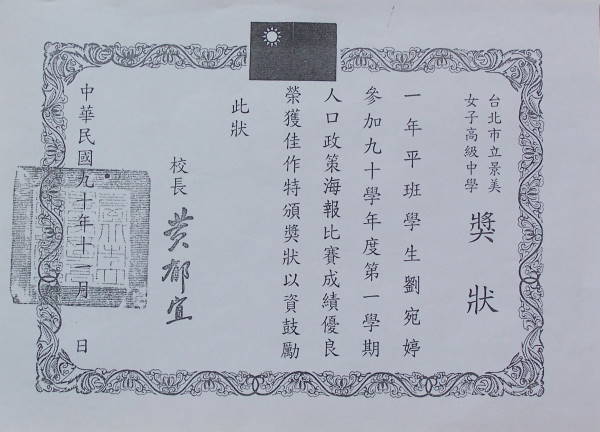 台北市立景美
女子高級中學
獎狀
一年平班學生劉宛婷
參加九十學年度第一學期
人口政策海報比賽成績優良
榮獲佳作特頒獎狀以資鼓勵
此狀
校長
黃郁宜
中華民國九十年十二月 日